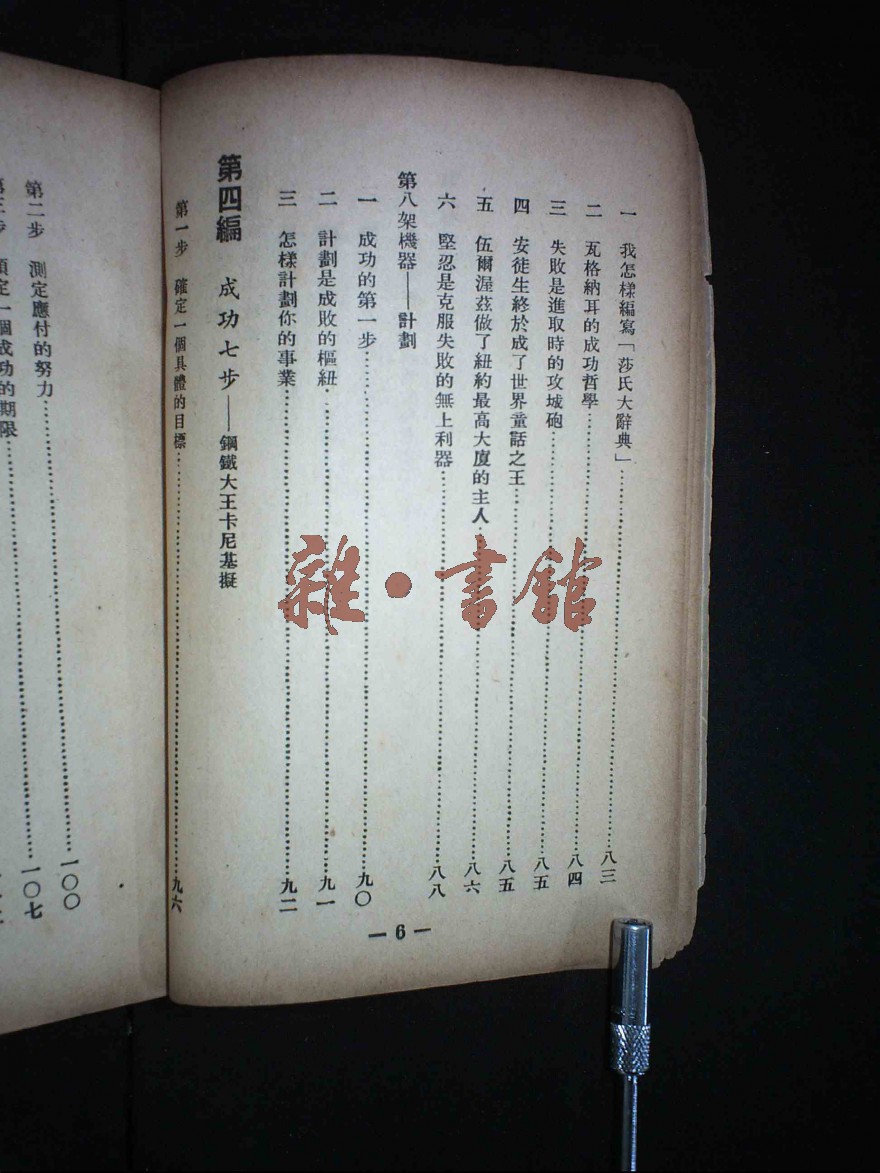 一 我怎樣編寫「莎氏大辭典」……八三
二 瓦格納耳的成功哲學……八四
三 失敗是進取時的攻城砲……八五
四 安徒生終於成了世界童話之王……八五
五 伍爾渥茲做了紐約最高大廈的主人……八六
六 堅忍是克服失敗的無上利器……八八
第八架機器——計劃
一 成功的第一步……九〇
二 計劃是成敗的樞紐……九一
三 怎樣計劃你的事業……九二
第四編 成功七步——鋼鐵大王卡尼基擬
第一步 確定一個具體的目標……九六
— 6 —
第二步 測定應付的努力……一〇〇
定一個成功的期限……一〇七
雜·書館